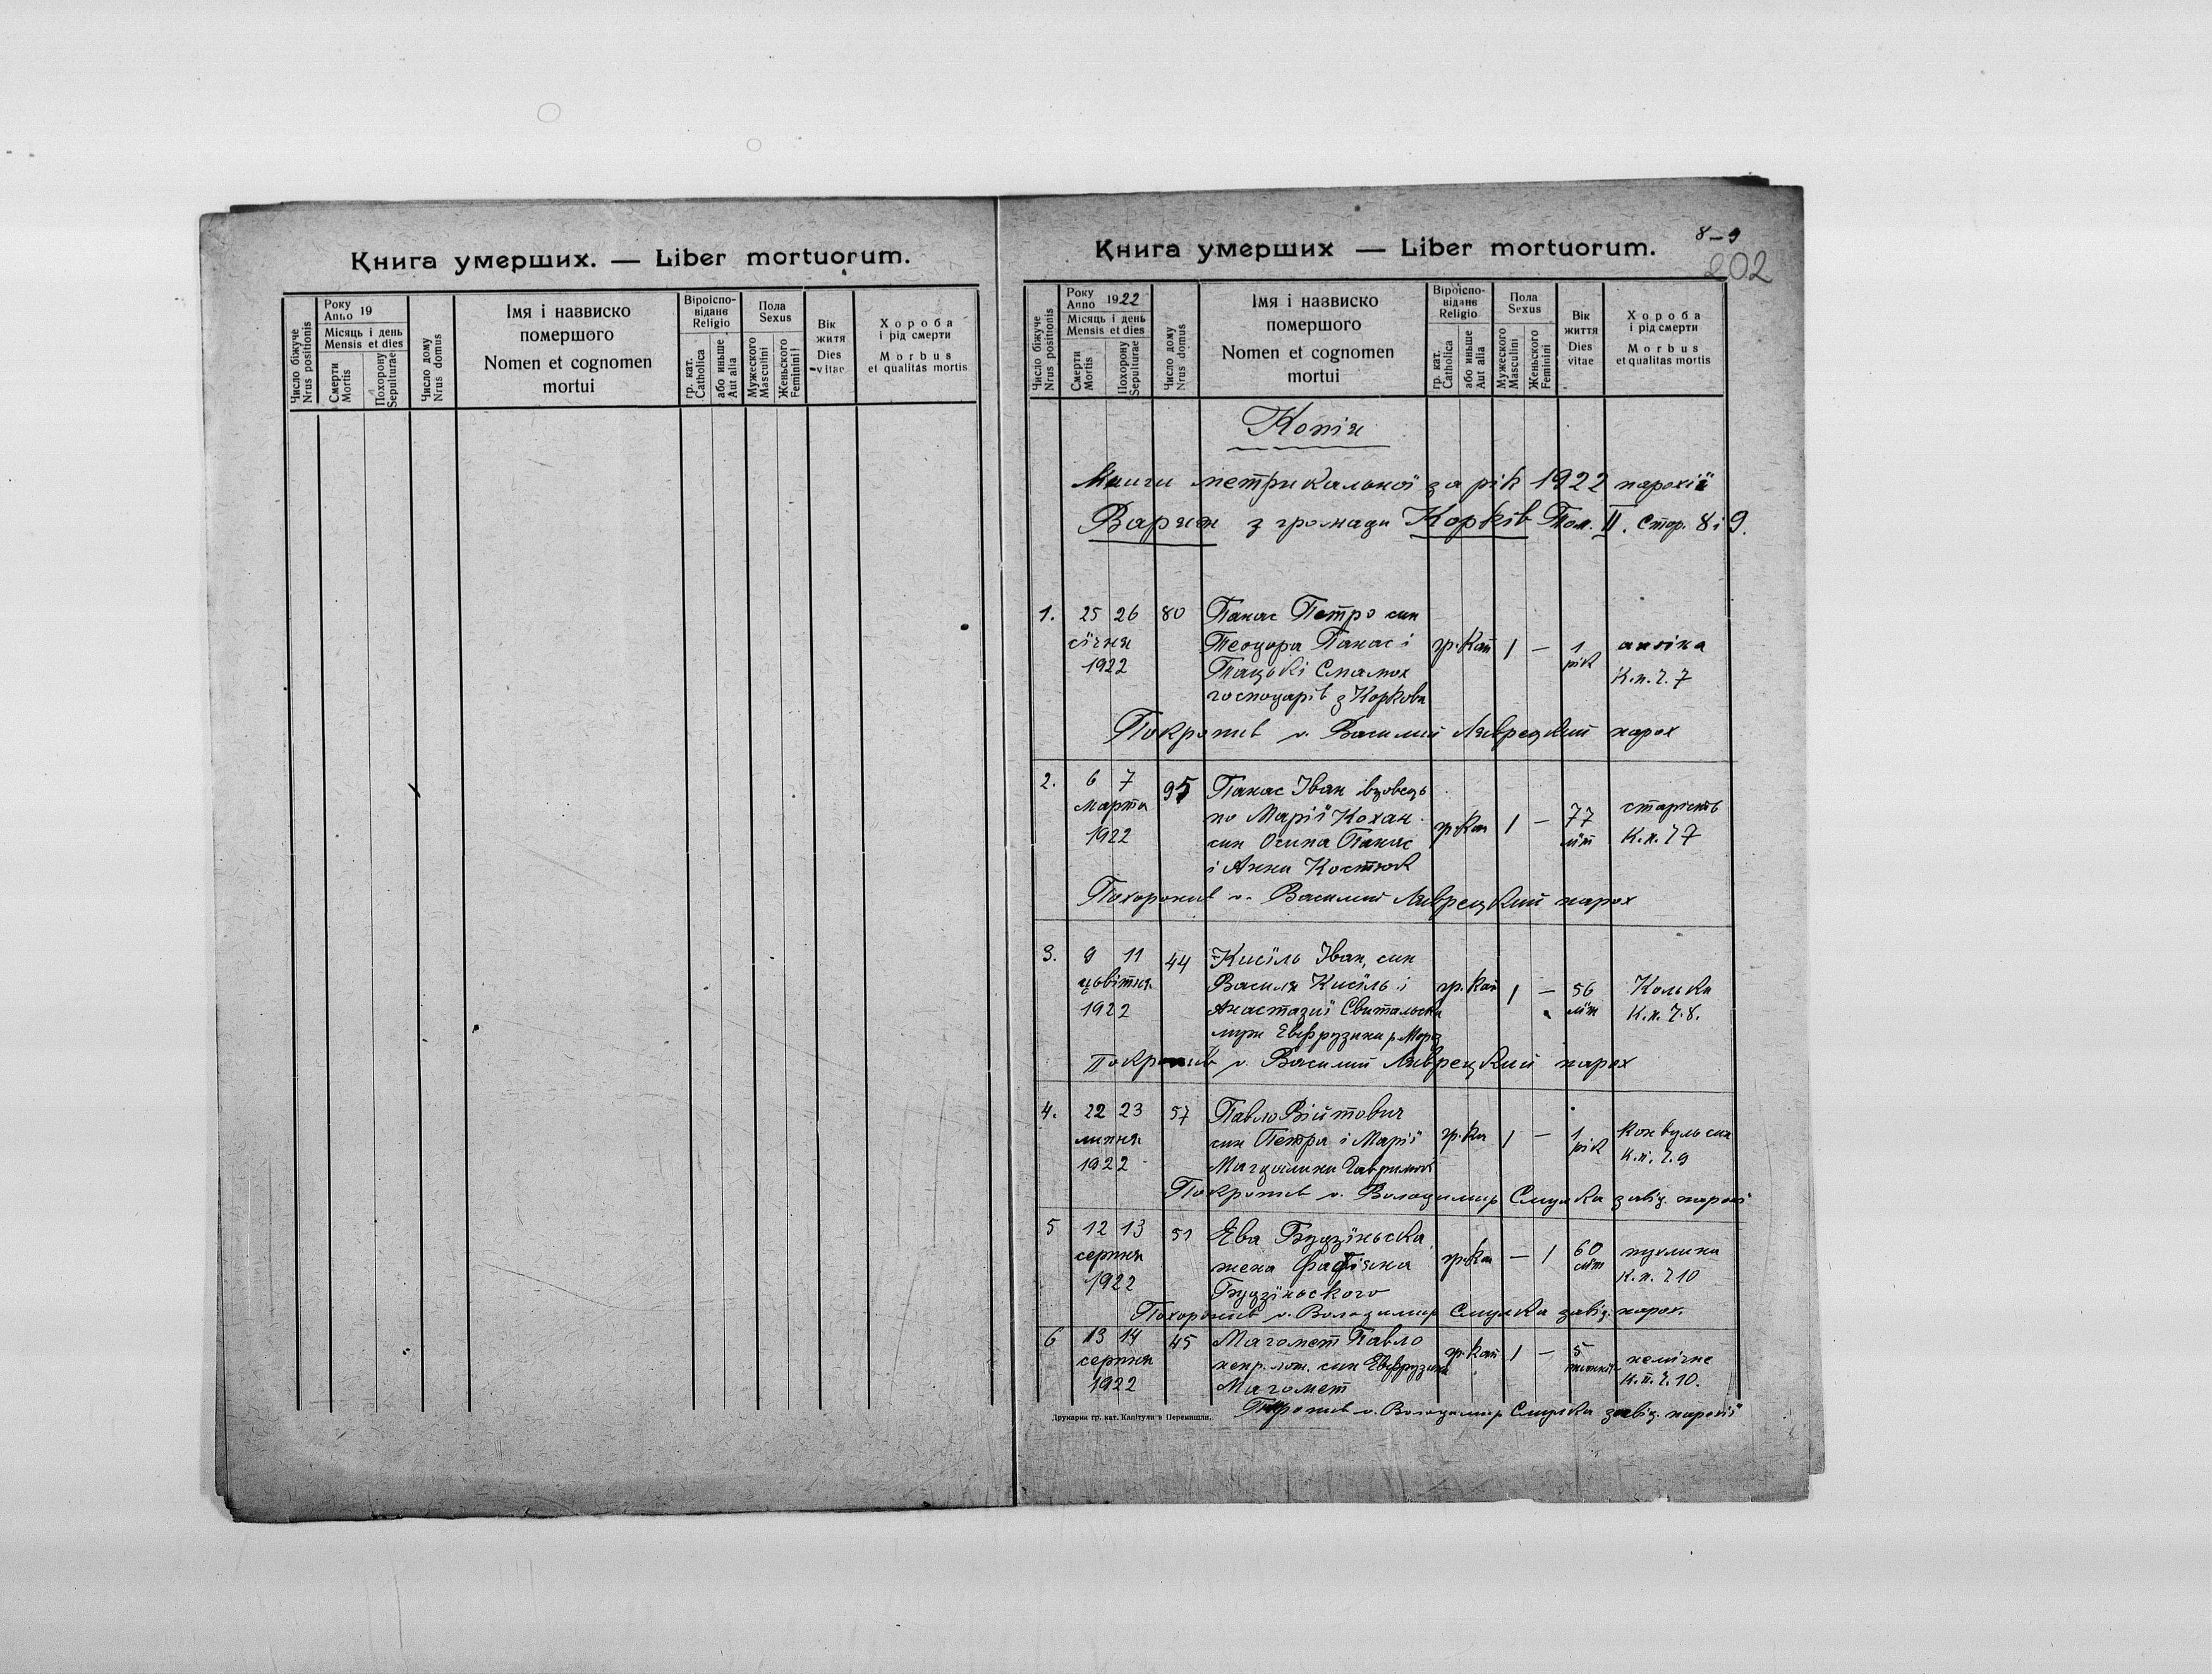 Книга умерших. — Liber mortuorum.
Число біжуче
Nrus positionis
Року
Anno 19
Місяць і день
Mensis et dies
Смерти
Mortis
Похорону
Sepulturae
Число дому
Nrus domus
Імя і назвиско
помершого
Nomen et cognomen
mortui
Віроіспо-
відане
Religio
гр. кат.
Catholica
або иньше
Aut alia
Пола
Sexus
Мужеского
Masculini
Женьского
Feminini
Вік
житя
Dies
vitae
Хороба
і рід смерти
Morbus
et qualitas mortis
8-9
202
Книга умерших — Liber mortuorum.
Число біжуче
Nrus positionis
Року
Anno 1922
Місяць і день
Mensis et dies
Смерти
Mortis
Похорону
Sepulturae
Число дому
Nrus domus
Імя і назвиско
помершого
Nomen et cognomen
mortui
Віроіспо-
відане
Religio
гр. кат.
Catholica
або иньше
Aut alia
Пола
Sexus
Мужеского
Masculini
Женьского
Feminini
Вік
життя
Dies
vitae
Хороба
і рід смерти
Morbus
et qualitas mortis
Копія
Книги метрикальної за рік 1922 парохії
Варяж з громади Корків Том. II. Стор. 8 і 9.
1. 25 26 80 Панас Петро син
січня Теодора Панас і гр. Кат 1 — 1 ангіна
1922 Тацькі рік К.п. 7. 7
господарів з Коркова
Покропив о. Василий Лаврецкий парох
2. 6 7 95 Панас Іван вдовець
марта по Марії Кохан гр. Кат 1 — 77 старість
1922 син Осипа Панас літ К.п. 7 7
і Анни Костюк
Похоронив о. Василий Лаврецкий парох
3. 9 11 44 Кисїль Іван, син
цьвітня Василя Кисїль і гр. Кат 1 — 56 Колька
1922 Анастазиї літ К.п. 7. 8.
муж Евфрузини
Покропив о. Василий Лаврецкий парох
4. 22 23 57 Павло Війтович
липня син Петра і Марії гр. Ка 1 — 1 конвульсия
1922 Магдалини рік К.п. 7. 9
Покропив о. Володимир завід. парохії
5 12 13 51 Ева Будзїньска
серпня жена Фабіяна гр. Кат — 1 60 пухлина
1922 Будзїньского літ К.п. 7 10
Похоронив о. Володимир завід. парох.
6 13 14 45 Магомет Павло
серпня непр. лож. син Евфрузини гр. Кат 1 — 5
1922 Магомет К.п. 7. 10.
о. Володимир завід. парохії
Друкарня гр. кат. Капітули в Перемишли.